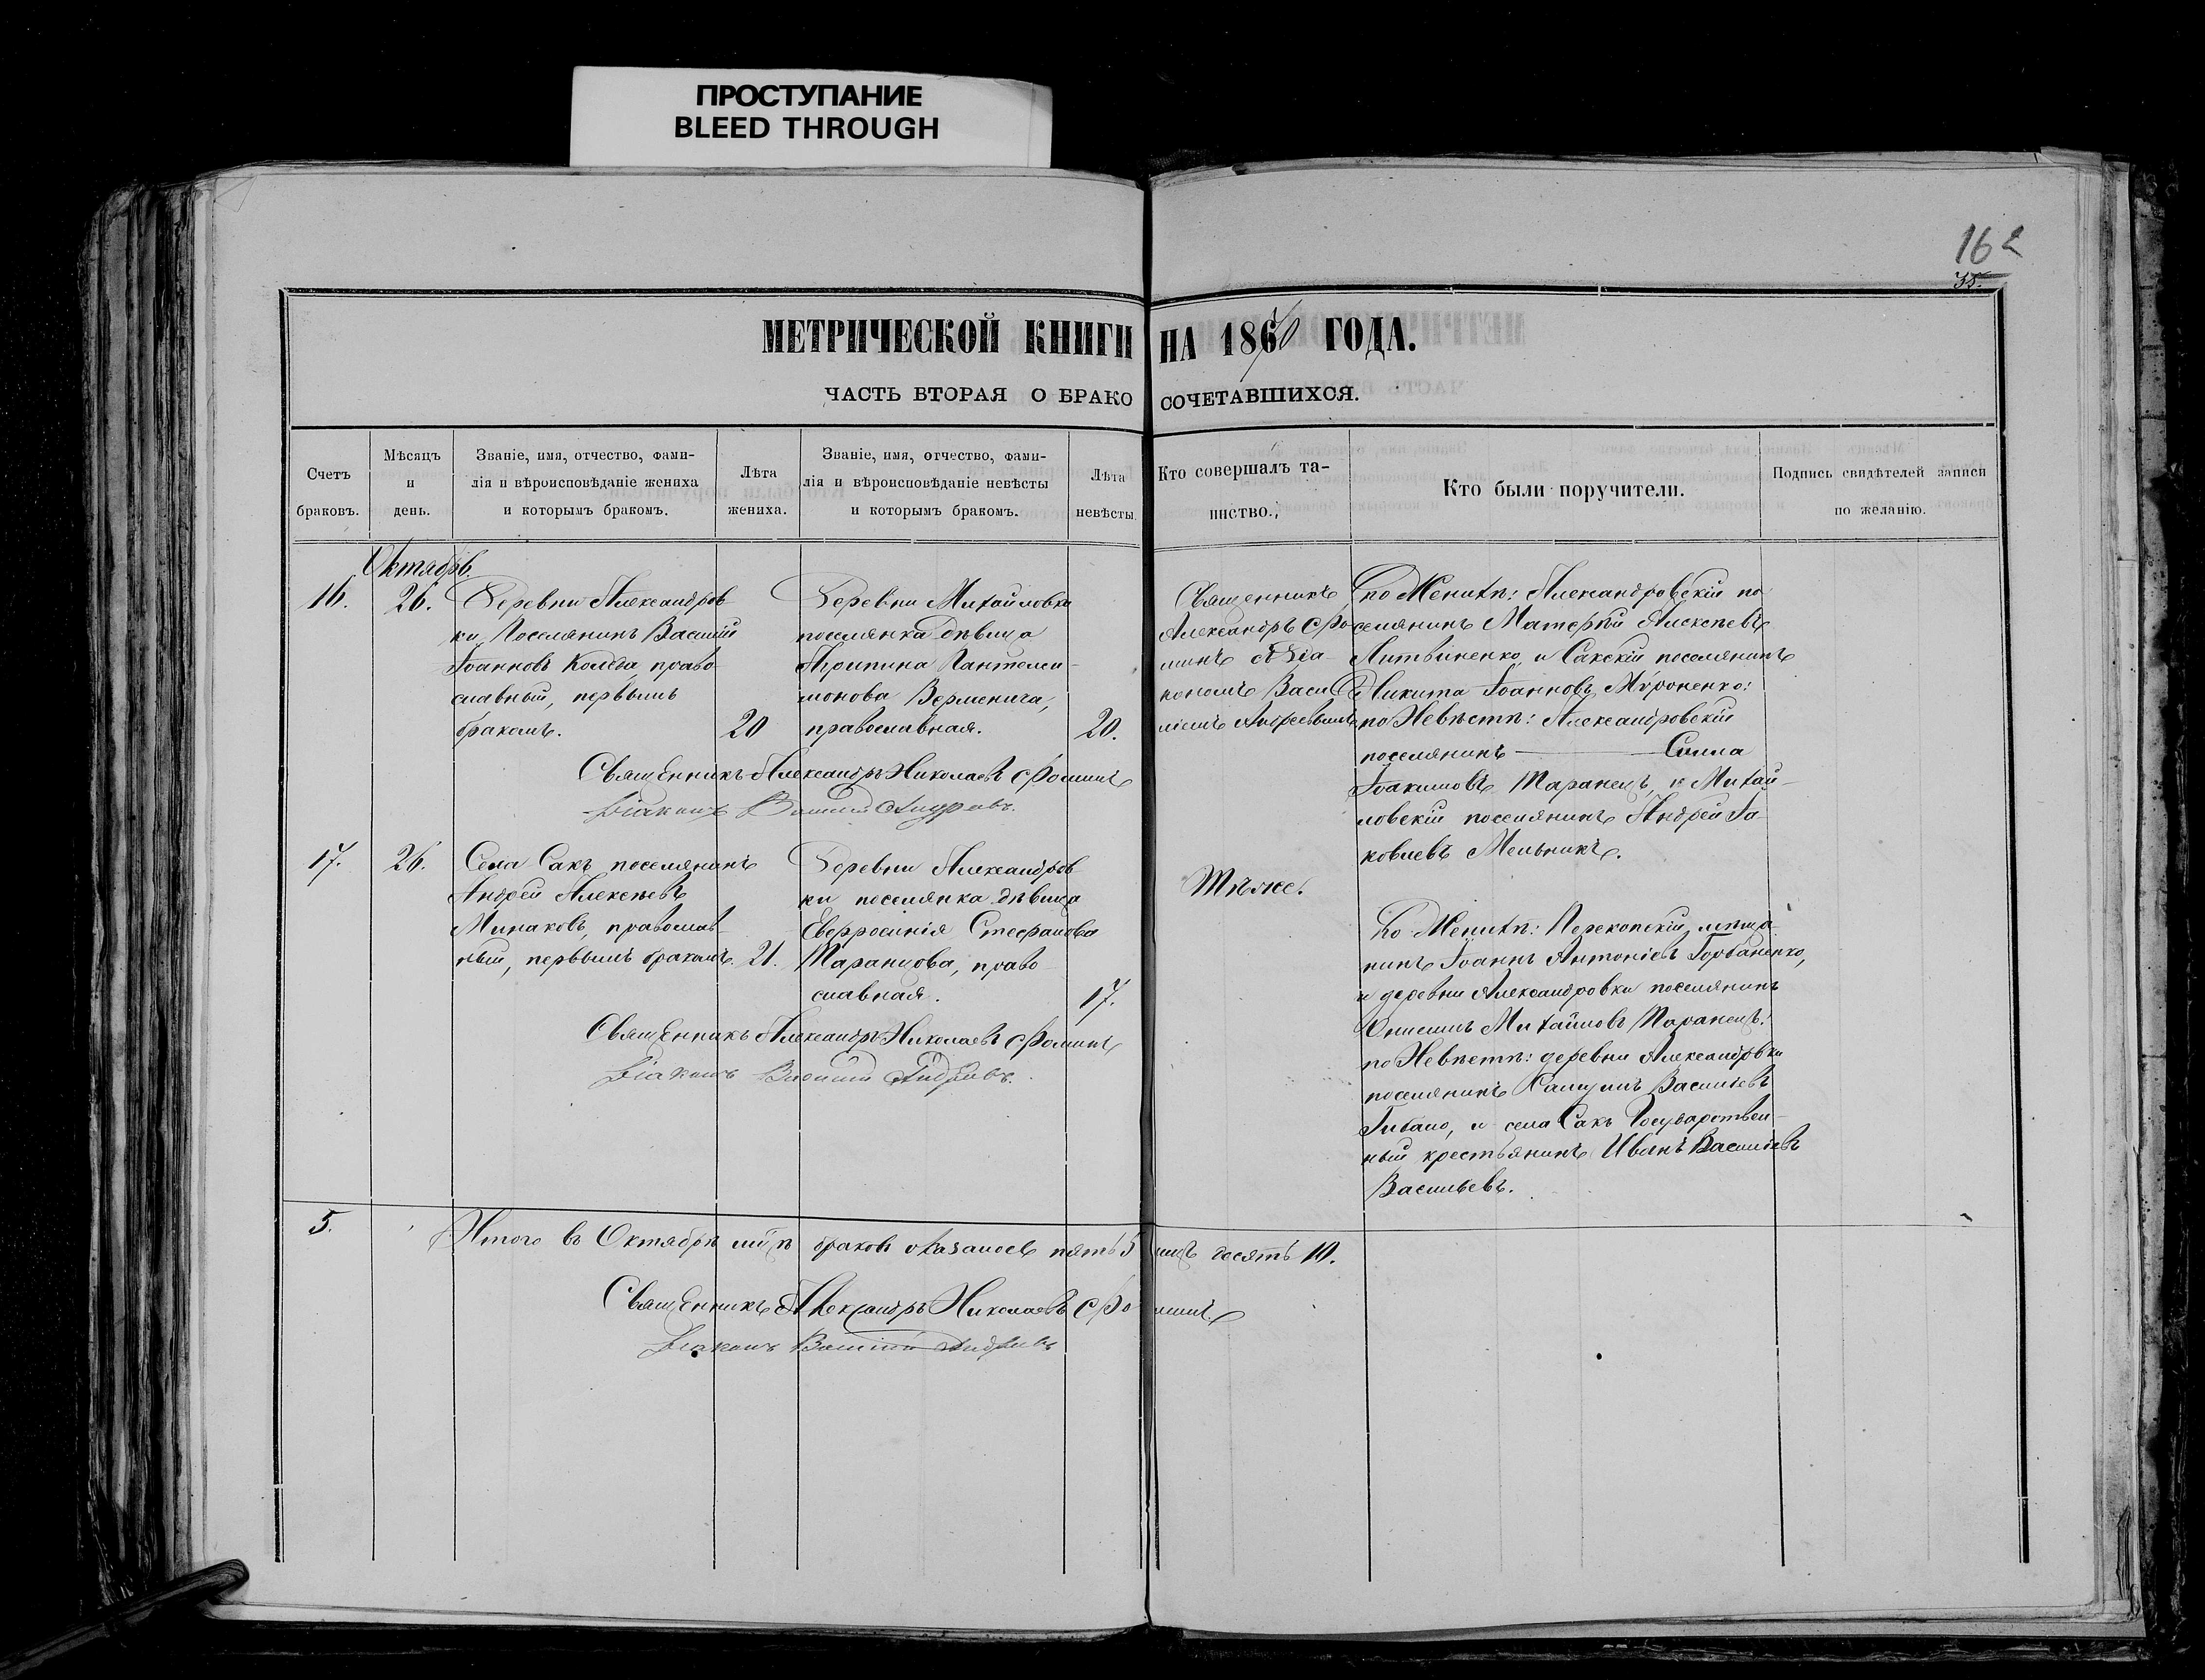 ПРОСТУПАНИЕ
BLEED THROUGH
162
38.
МЕТРИЧЕСКОЙ КНИГИ НА 1870 ГОДА.
ЧАСТЬ ВТОРАЯ О БРАКОСОЧЕТАВШИХСЯ.
Счетъ браковъ.
Мѣсяцъ и день.
Званіе, имя, отчество, фами-
лія и вѣроисповѣданіе жениха
и которымъ бракомъ.
Лѣта жениха.
Званіе, имя, отчество, фами-
лія и вѣроисповѣданіе невѣсты
и которымъ бракомъ.
Лѣта невѣсты.
Кто совершалъ та-
инство.
Кто были поручители.
Подпись свидѣтелей записи
по желанію.
Октябрь.
16.
26.
Деревни Александров
ки Поселянинъ Василій
Іоанновъ право
славный, первымъ
бракомъ.
20
Деревни Михайловки
поселянка дѣвица
Агрипина Пантелеи-
монова
православная.
20.
Священникъ
Александръ Фо-
минъ съ Діа-
кономъ Васи
ліемъ Андреевымъ
по Женихѣ: Александровскій по
селянинъ Матѳей Алексѣевъ
Литвиненко, и Сакскій поселянинъ
Никита Іоанновъ Мѵроненко:
по Невѣстѣ: Александровскій
поселянинъ Силла
Іоакимовъ Таранецъ, и Михай-
ловскій поселянинъ Андрей Іа-
ковлевъ Мельникъ.
Священникъ Александръ Николаевъ Фоминъ
Діаконъ Василій Андреевъ.
17.
26.
Села Сакъ поселянинъ
Андрей Алексѣевъ
Минаковъ, православ
ный, первымъ бракомъ.
21.
Деревни Александров
ки поселянка дѣвица
Евфросинія Стефанова
Таранцова, право
славная.
17.
Тѣже.
По Женихѣ: Перекопскій мѣща-
нинъ Іоаннъ Антоніевъ Горбаненко,
и деревни Александровки поселянинъ
Онисимъ Михайловъ Таранецъ:
по Невѣстѣ: деревни Александровки
поселянинъ Васильевъ
и села Сакъ Государствен-
ный крестьянинъ Иванъ Васильевъ
Васильевъ.
Священникъ Александръ Николаевъ Фоминъ
Діаконъ Василій Андреевъ.
5.
Итого въ Октябрѣ мцѣ браковъ оказалось пять 5 лицъ десять 10.
Священникъ Александръ Николаевъ Фоминъ
Діаконъ Василій Андреевъ